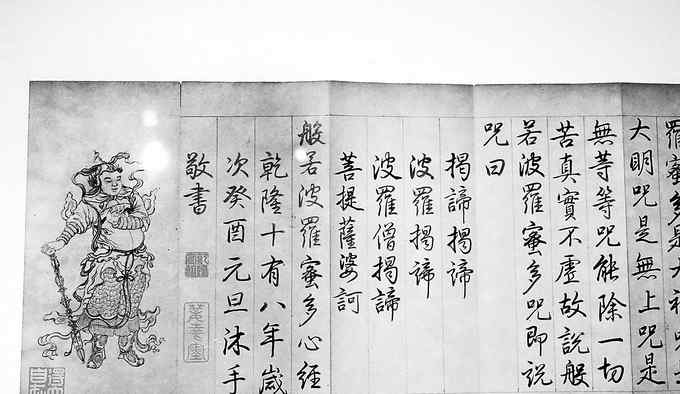 羅蜜多是大神咒是
大明咒是無上咒是
無等等咒能除一切
苦真實不虛故說般
若波羅蜜多咒即說
咒曰
揭諦揭諦
波羅揭諦
波羅僧揭諦
菩提薩婆訶
般若波羅蜜多心經
乾隆十有八年歲
次癸酉元旦沐手
敬書